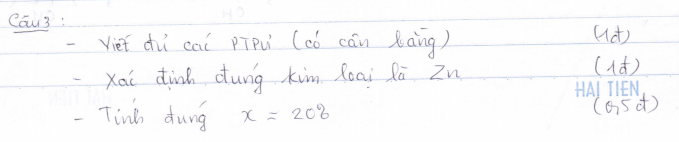 Câu 3 :
- Viết đủ các PTPƯ (có cân bằng) (1đ)
- Xác định đúng kim loại là Zn (1đ)
HẢI TIẾN
- Tính đúng x = 20% (0,5 đ)